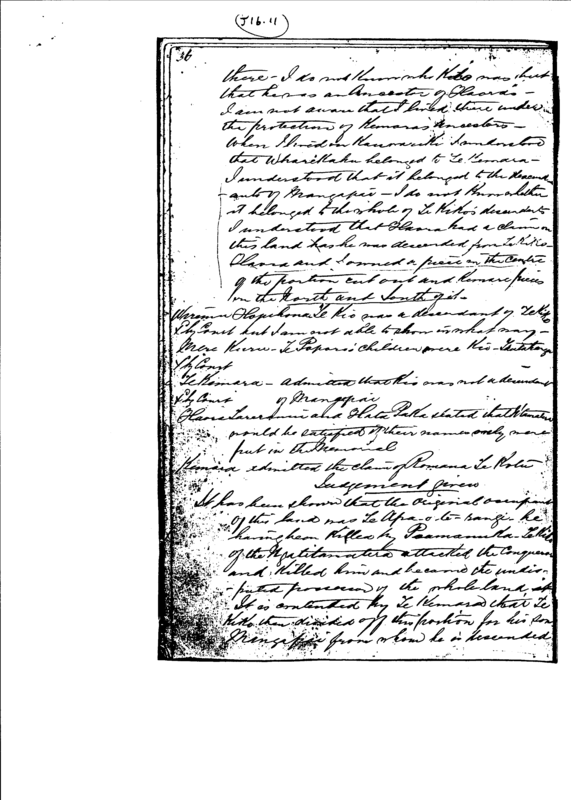 (J16.11)
36
there - I do not know who was but
that he was an Ancestor of
I am not aware that I lived there under
the protection of Kemaras Ancestors -
When I lived in I understood
that WhareKahu belonged to Te Kemara -
I understood that it belonged to the descend
- ants of Mangapai - I do not know whether
it belonged to the whole of Te Kikos descendants
I understood that had a claim on
this land & as he was descended from Te Kikos -
and I owned a piece in the centre
of the portion cut out and Kemara pieces
on the North and South of it -
Te Kio was a descendant of Te Kiko
& by Court but I am not able to show in what way -
Mere children were Kio -
& by Court
Te Kemara - Admitted that Kio was not a descendant
& by Court of Mangapai
and stated that
would be satisfied if their names only were
put in the Memorial
Kemara admitted the claim of Romana Te
Judgement given
It has been shown that the original occupant
of this land was Te Apa-o-te-rangi - he
having been killed by Te Kiko
of the Ngatitamatera attacked the Conqueror
and killed him and became the undis-
- puted possessor of the whole land
It is contended by Te Kemara that Te
Kiko then divided off this portion for his son
Mangapai from whom he is descended